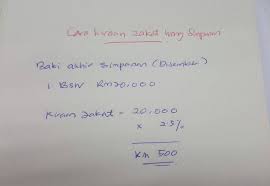 Cara kiraan zakat wang simpanan
Baki akhir simpanan (Disember)
1 BSN RM20.000
Kiraan zakat = 20.000
x 2.5%
RM 500